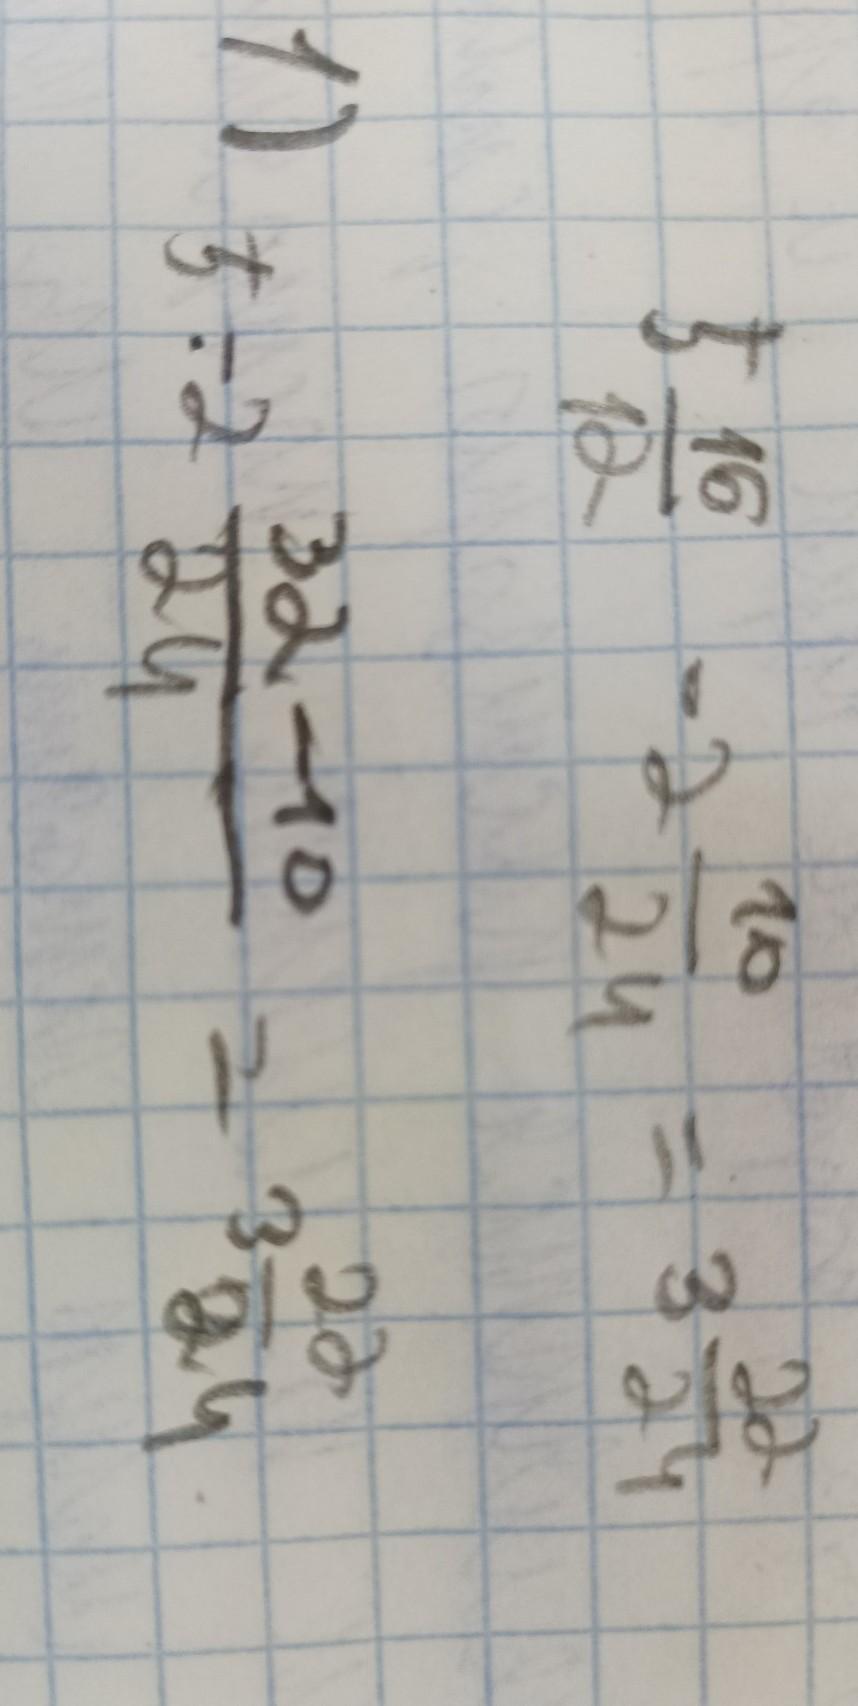 5 16/12 - 2 10/24 = 3 22/24
1) 5 - 2 32-10/24 = 3 22/24